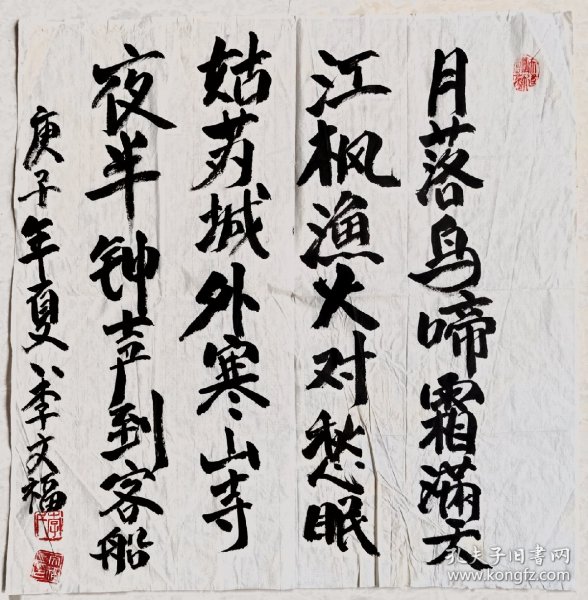 月落鸟啼霜满天
江枫渔火对愁眠
姑苏城外寒山寺
夜半钟声到客船
庚子年夏 李文福
孔夫子旧书网
www.kongfz.com